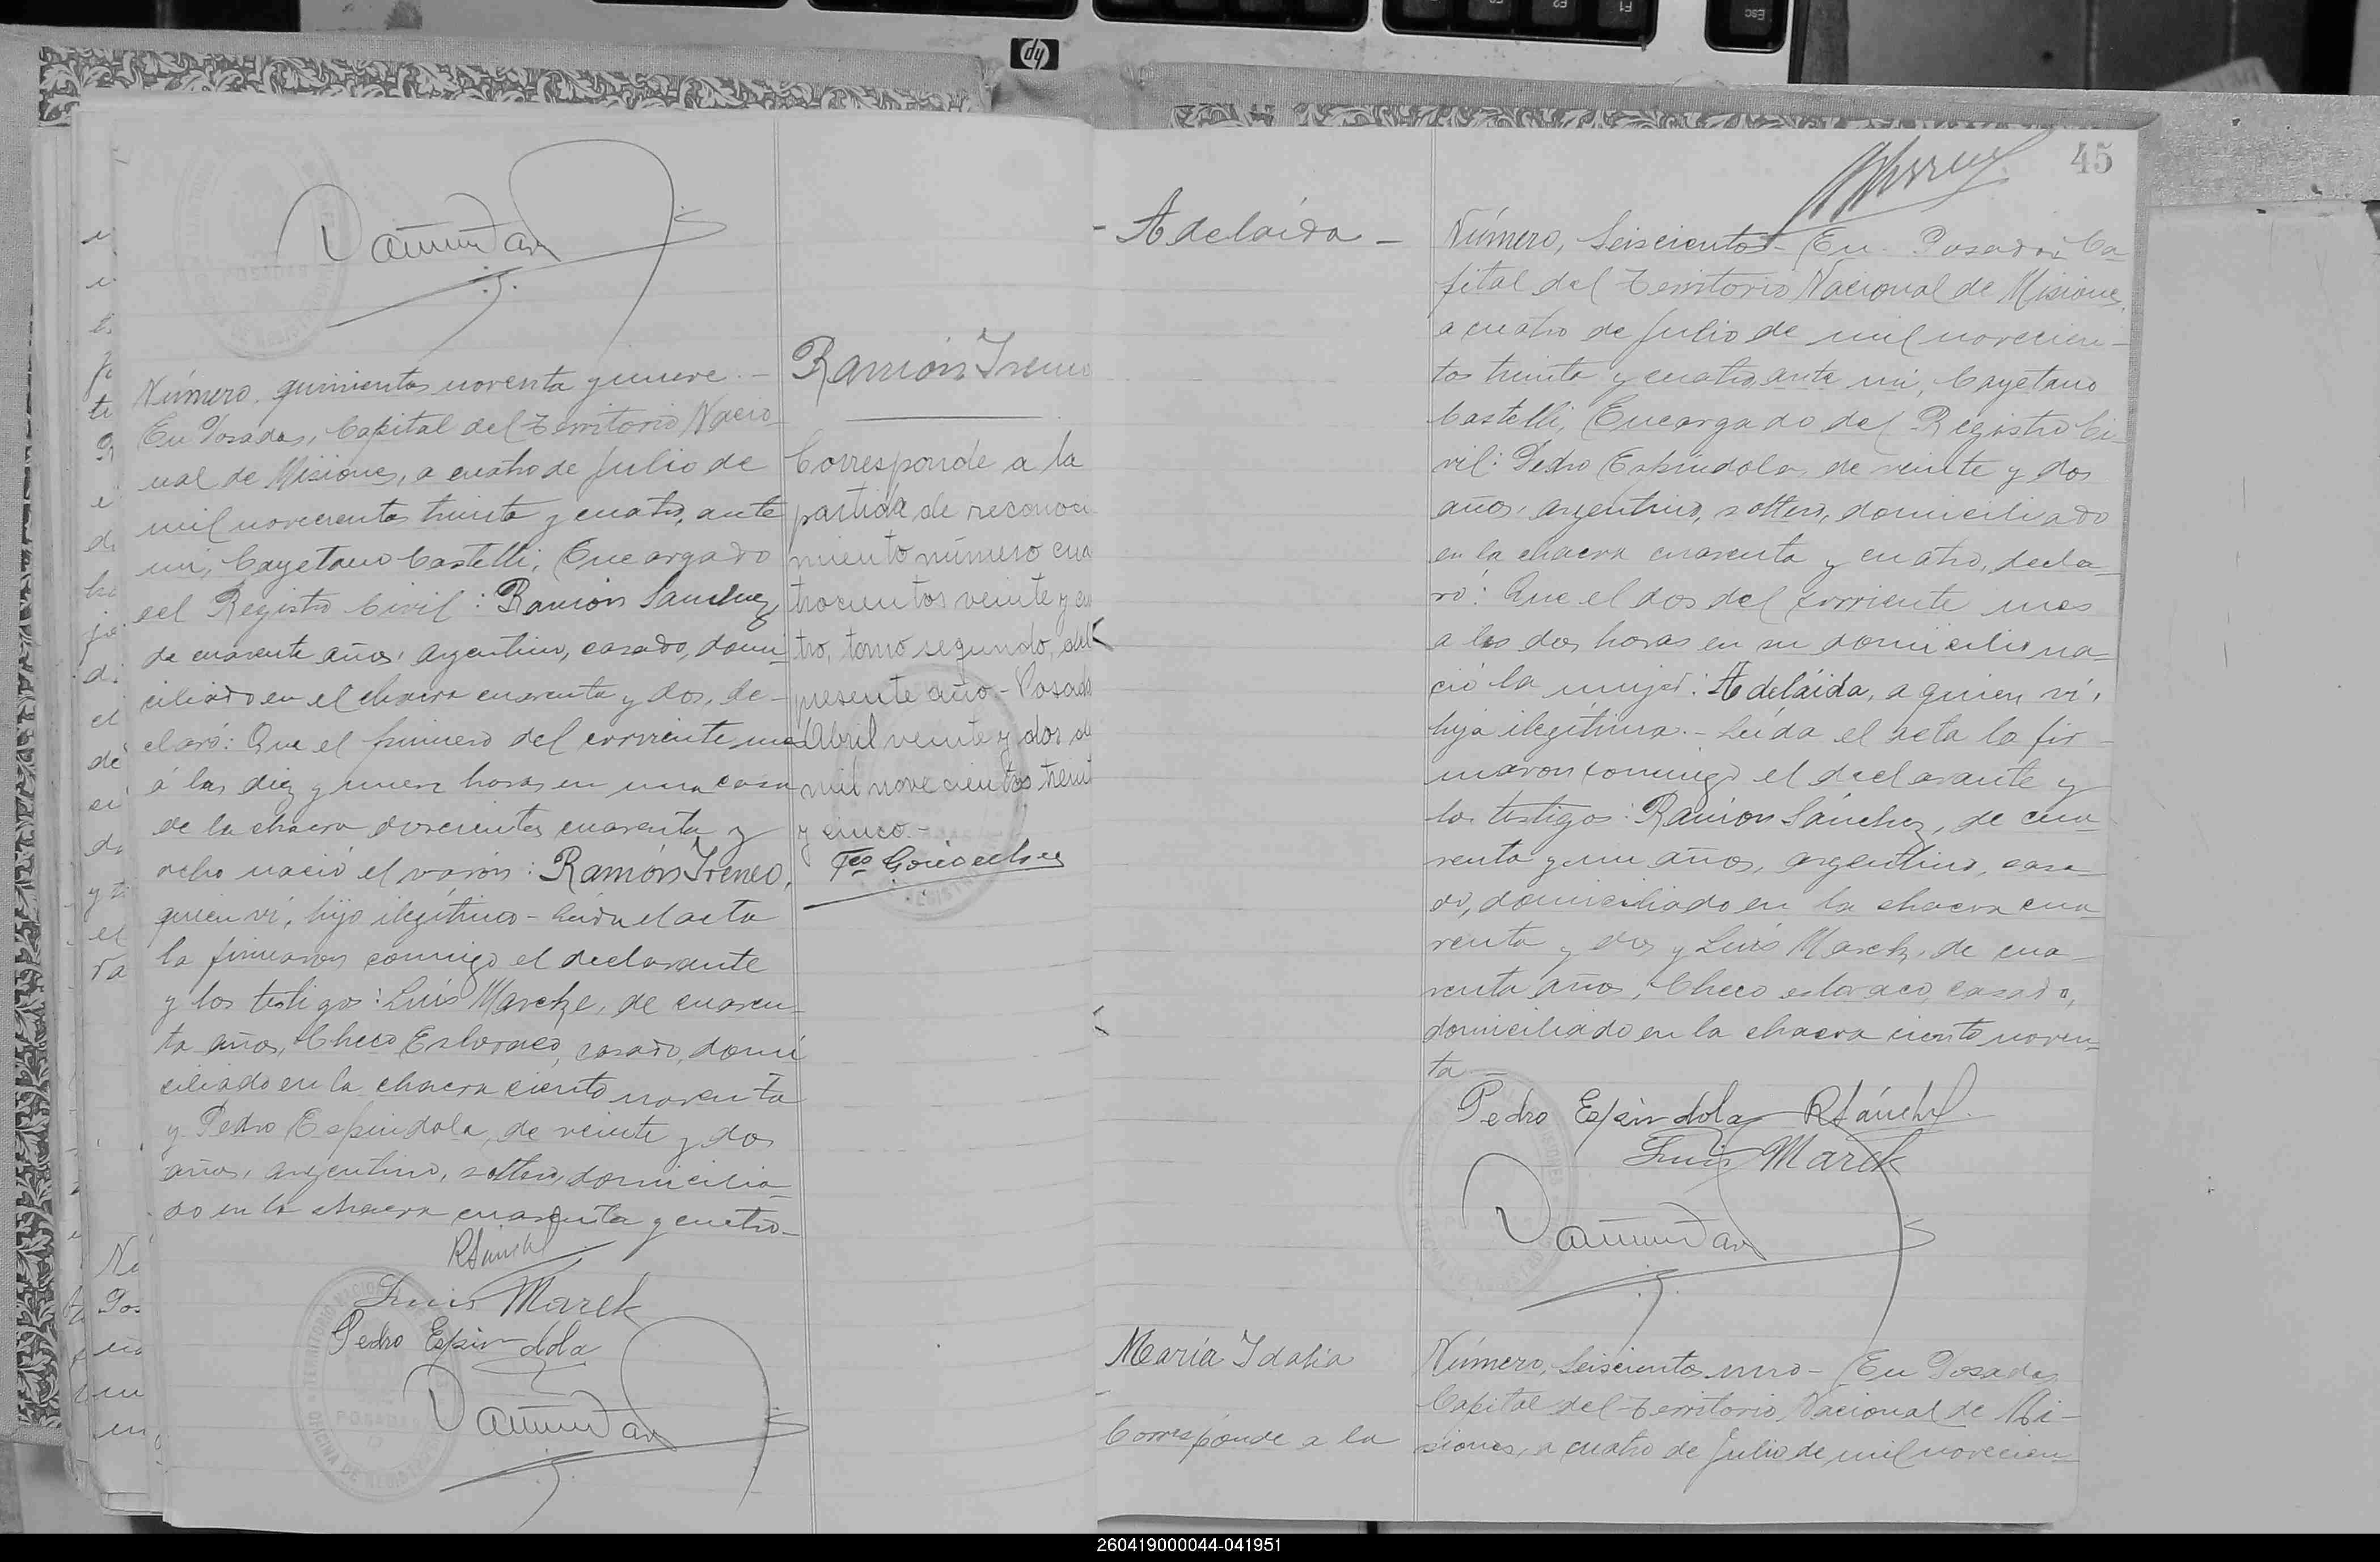 Número, quinientos noventa y nueve.-
En Posadas, Capital del Territorio Nacio-
nal de Misiones, a cuatro de Julio de
mil novecientos treinta y cuatro, ante
mi, Cayetano Castelli, Encargado
del Registro Civil: Ramón Sanchez
de cuarenta años, argentino, casado, domi-
ciliado en el chacra cuarenta y dos, de-
claró: Que el primero del corriente mes
á las diez y nueve horas en una casa
de la chacra doscientos cuarenta y
ocho nació el varón: Ramón Ireneo,
quien ví, hijo ilegítimo - Leida el acta
la firmaron conmigo el declarante
y los testigos: Luís Marckze, de cuaren-
ta años, Checo Eslovaco, casado, domi
ciliado en la chacra ciento noventa
y Pedro Espindola, de veinte y dos
años, argentino, soltero, domicilia-
do en la chacra cuarenta y cuatro-
RSánchez
Luis Marek
Pedro Espindola
Ramón Ireneo
Corresponde a la
partida de reconoci
miento número cua
trocientos veinte y cua
tro, tomo segundo, del
presente año - Posadas
Abril veinte y dos de
mil novecientos treint
y cinco.-
45
- Adelaída -
Número, Seiscientos - En Posadas Ca-
pital del Territorio Nacional de Misiones,
a cuatro de Julio de mil novecien-
tos treinta y cuatro, ante mi, Cayetano
Castelli, Encargado del Registro Ci-
vil: Pedro Espíndola, de veinte y dos
años, argentino, soltero, domiciliado
en la chacra cuarenta y cuatro, decla-
ró: Que el dos del corriente mes
a las dos horas en su domicilio na-
ció la mujer: Adeláida, a quien ví,
hija ilegítima.- Leída el acta la fir-
maron conmigo el declarante y
los testigos: Ramón Sánchez, de cua-
renta y un años, argentino, casa-
do, domiciliado en la chacra cua
renta y dos y Luís Marck, de cua-
renta años, Checo eslovaco, casado,
domiciliado en la chacra ciento noven-
ta.-
Pedro Espindola RSánchez
Luis Marek
María Idalia
Corresponde a la
Número, Seiscientos uno - En Posadas
Capital del Territorio Nacional de Mi-
siones, a cuatro de Julio de mil novecien
260419000044-041951